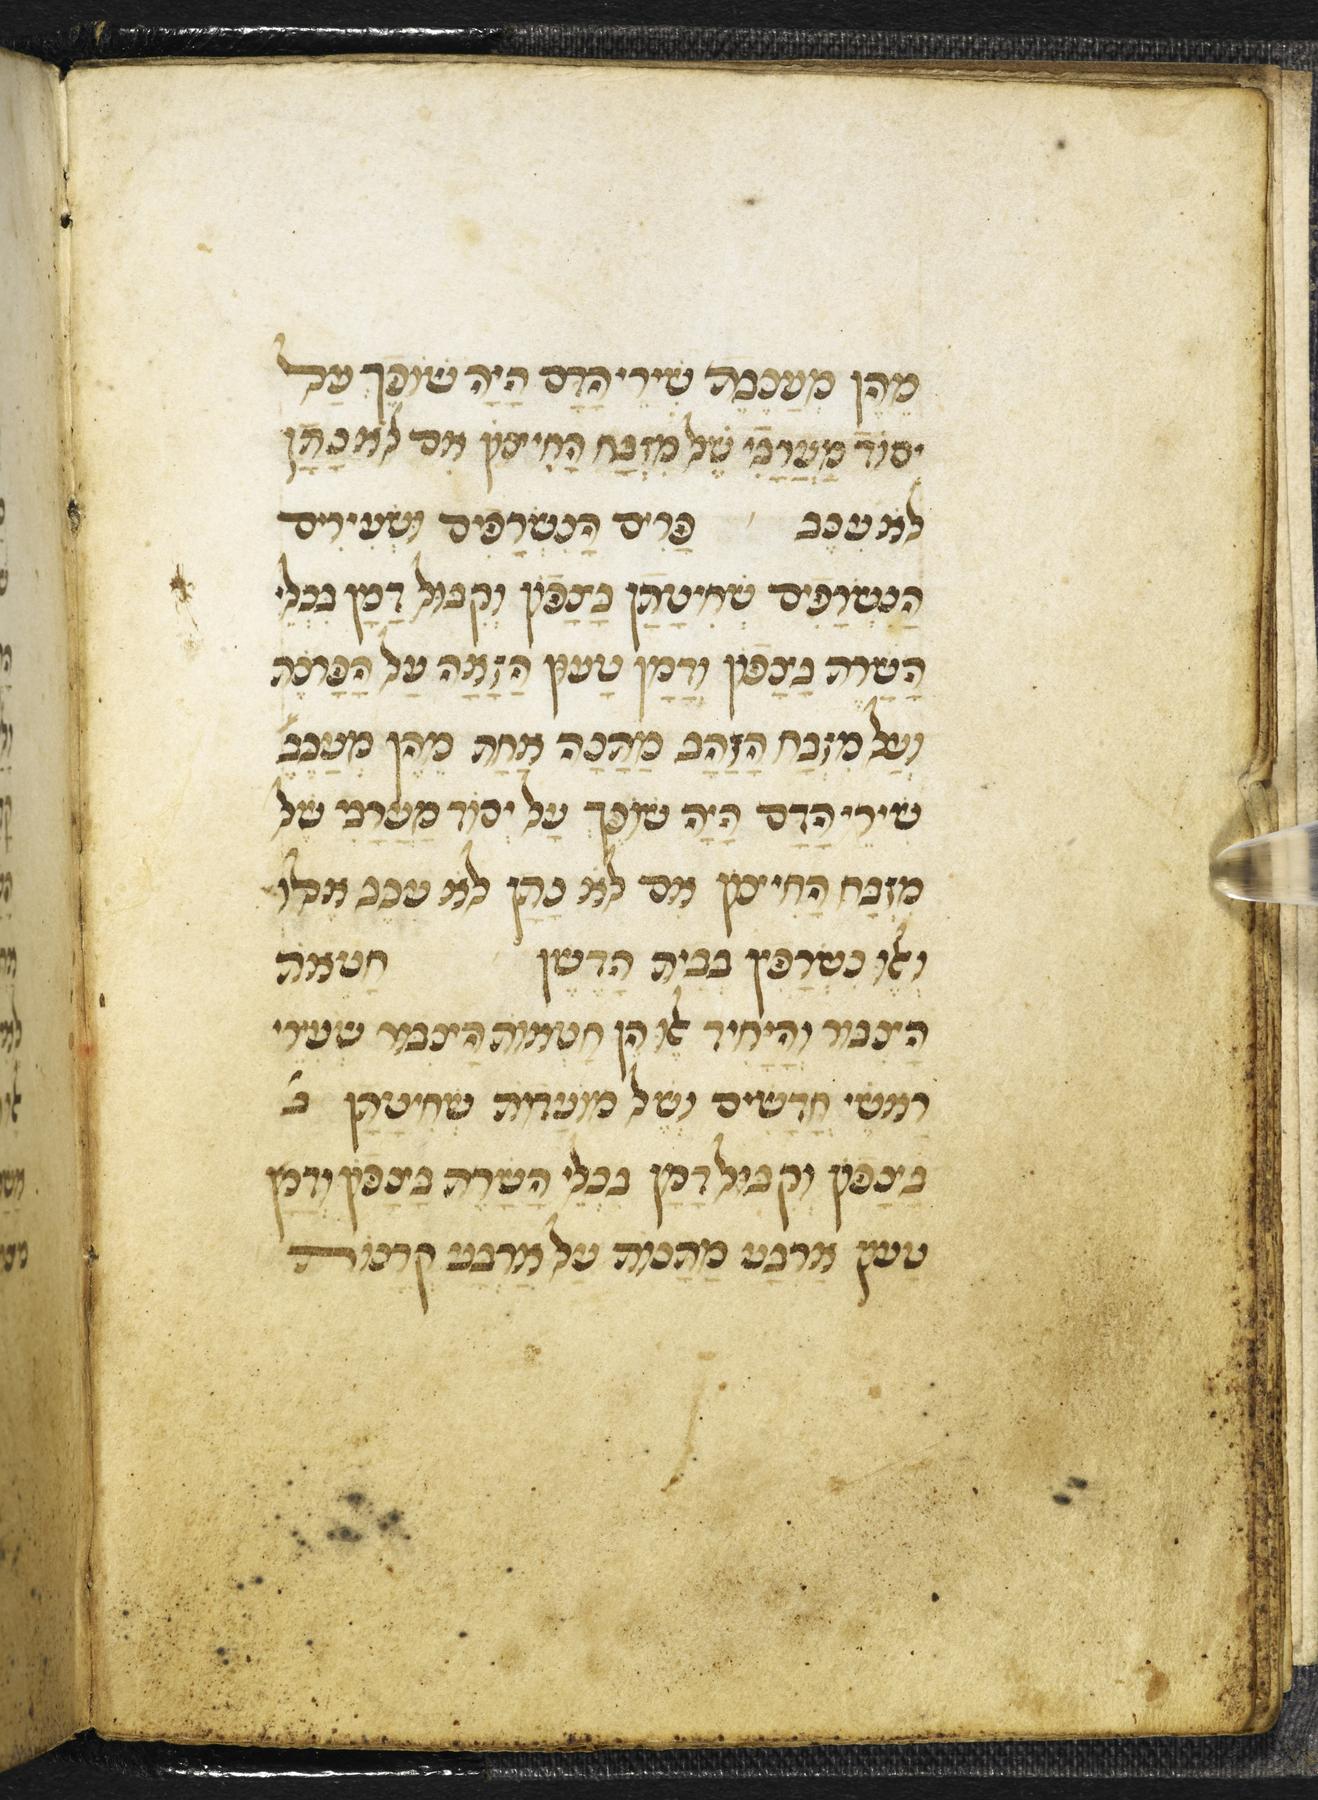 מֵהֶן מְעַכֶּבֶת שְׁיֵרֵי הַדָּם הָיָה שׁוֹפֵךְ עַל
יְסוֹד מַעֲרָבִי שֶׁל מִזְבֵּחַ הַחִיצוֹן אִם לֹא נָתַן
לֹא עִכֵּב פָּרִים הַנִשְׂרָפִים וּשְׂעִירִים
הַנִשְׂרָפִים שְׁחִיטָתָן בַּצָפוֹן וְקִבּוּל דָמָן בִּכְלֵי
הַשָׁרֵת בַּצָפוֹן וְדָמָן טָעוּן הַזָאָה עַל הַפָּרֹכֶת
וְעַל מִזְבַּח הַזָהָב מַתָנָה אַחַת מֵהֶן מְעַכֶּבֶ
שְׁיֵרֵי הַדָם הָיָה שׁוֹפֵךְ עַל יְסוֹד מַעֲרָבִי שֶׁל
מִזְבֵּחַ הַחִיצוֹן אם לֹא נָתַן לֹא עִכֵּב אֵלוּ
וָאֵלוּ נִשְׂרָפִין בְּבֵית הַדֶשֶׁן חַטֹאת
הַצִבּוּר וְהַיָחִיד אֵלוּ הֵן חַטֹאות הַצִבּוּר שְׂעִירֵי
רָאשֵׁי חֳדָשִׁים וְשֶׁל מוֹעֲדוֹת שְׁחִיטָתָן בּ
בַּצָפוֹן וְקִבּוּל דָמָן בִּכְלֵי הַשָׁרֵת בַּצָפוֹן וְדָמָן
טָעוּן אַרְבַּע מַתָנוֹת עַל אַרְבַּע קְרָנוֹת